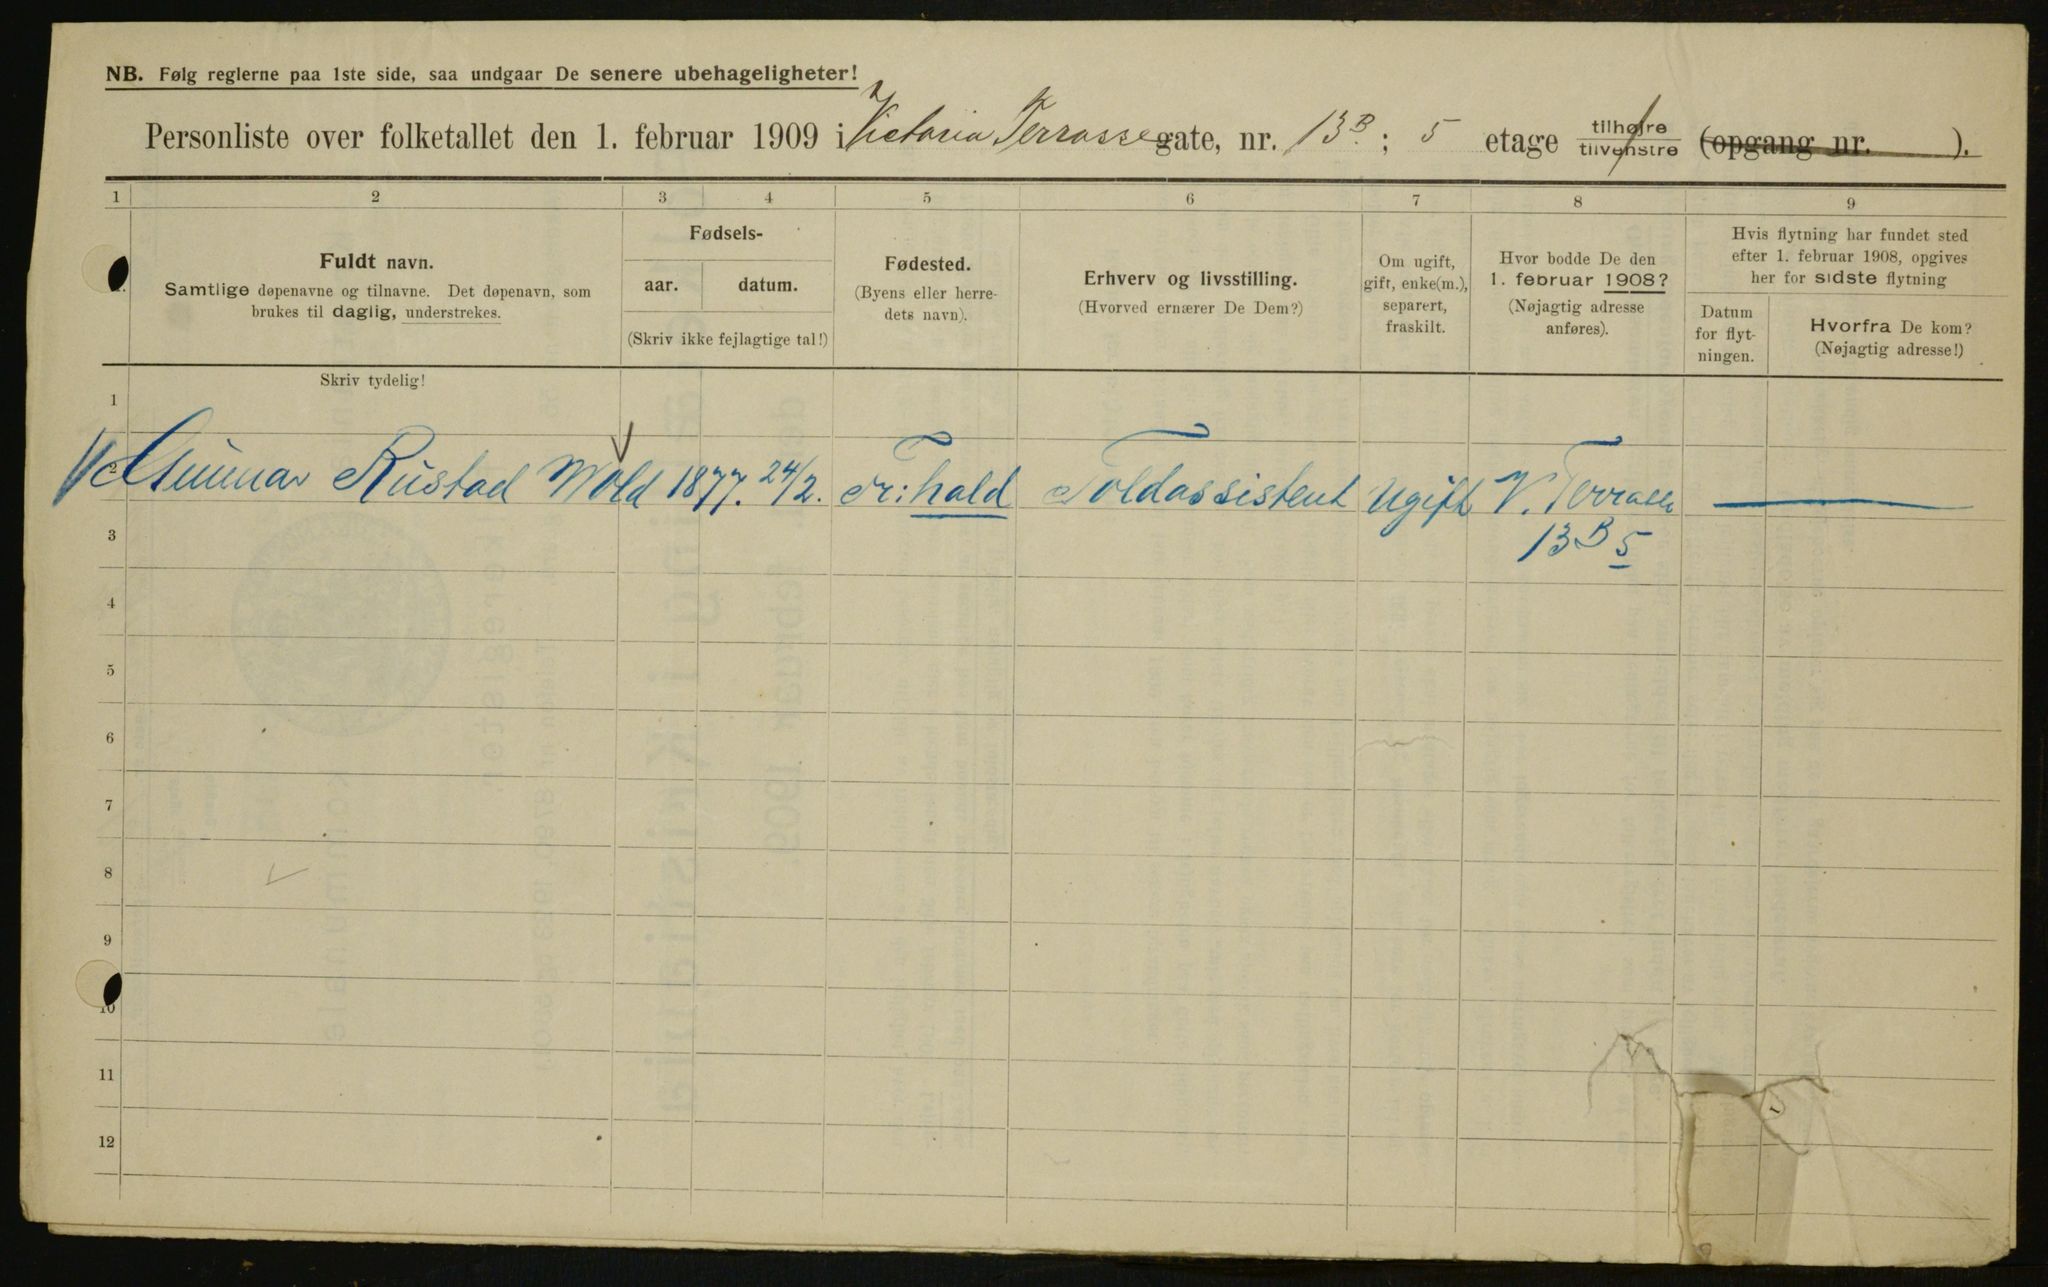 NB. Følg reglerne paa 1ste side, saa undgaar De senere ubehageligheter!
Personliste over folketallet den 1. februar 1909 i Victoria Terrasse gate, nr. 13B; 5 etage tilhøjre tilvenstre (opgang nr. ).
1 2 3 4 5 6 7 8 9
Fuldt navn.
Samtlige døpenavne og tilnavne. Det døpenavn, som
brukes til daglig, understrekes.
Fødsels-
aar. datum.
(Skriv ikke fejlagtige tal!)
Fødested.
(Byens eller herre-
dets navn).
Erhverv og livsstilling.
(Hvorved ernærer De Dem?)
Om ugift,
gift, enke(m.),
separert,
fraskilt.
Hvor bodde De den
1. februar 1908?
(Nøjagtig adresse
anføres).
Hvis flytning har fundet sted
efter 1. februar 1908, opgives
her for sidste flytning
Datum
for flyt-
ningen.
Hvorfra De kom?
(Nøjagtig adresse!)
Skriv tydelig!
1
2 Gunnar Rustad Wold 1877. 24/2. Fr:hald Toldassistent Ugift V. Terrasse
13B 5
3
4
5
6
7
8
9
10
11
12